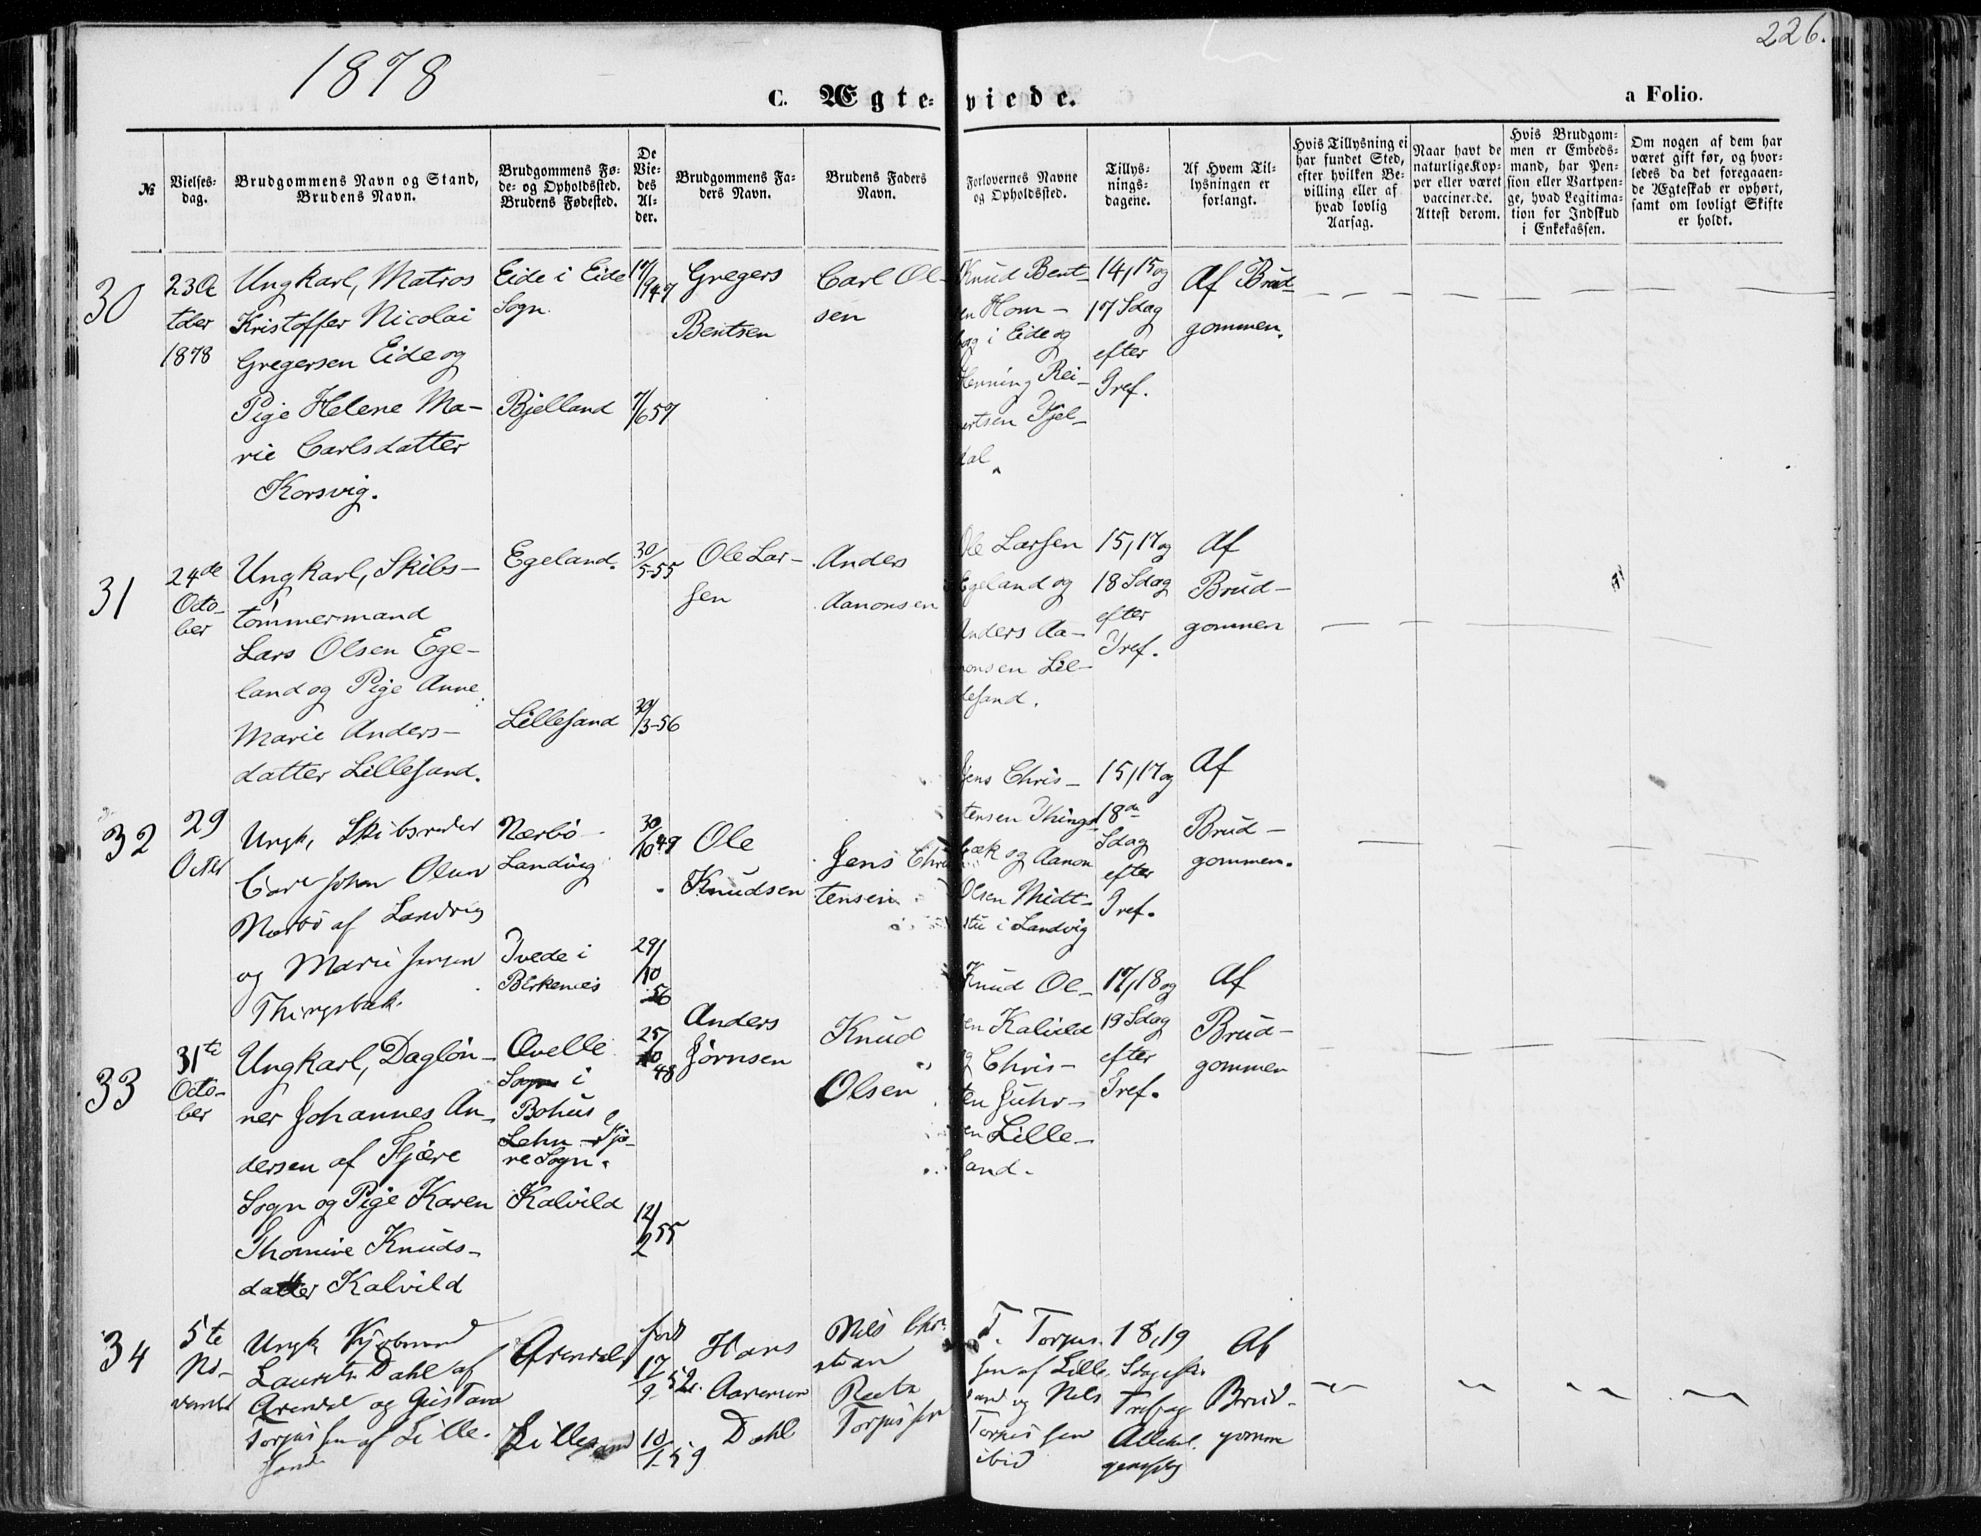 1878
226.
C. Ægte-viede.
a Folio.
№
Vielses-
dag.
Brudgommens Navn og Stand,
Brudens Navn.
Brudgommens Fø-
de- og Opholdssted.
Brudens Fødested.
De
Vie-
des
Al-
der.
Brudgommens Fa-
ders Navn.
Brudens Faders
Navn.
Forlovernes Navne
og Opholdssted.
Tillys-
nings-
dagene.
Af Hvem Til-
lysningen er
forlangt.
Hvis Tillysning ei
har fundet Sted,
efter hvilken Be-
villing eller af
hvad lovlig
Aarsag.
Naar havt de
naturlige Kop-
per eller været
vaccinerde.
Attest derom.
Hvis Brudgom-
men er Embeds-
mand, har Pen-
sion eller Vartpen-
ge, hvad Legitima-
tion for Indskud
i Enkekassen.
Om nogen af dem har
været gift før, og hvor-
ledes da det foregaaen-
de Ægteskab er ophørt,
samt om lovligt Skifte
er holdt.
30
23 Oc
tober
1878
Ungkarl, Matros
Kristoffer Nicolai
Gregersen Eide og
Pige Helene Ma-
rie Carlsdatter
Korsvig.
Eide i Eide
Sogn.
Bjelland
17/9 47
7/6 57
Gregers
Bentsen
Carl Ol-
sen
Knud Bent-
en Hom-
borg i Eide og
Henning Rei-
ertsen Kjel-
dal
14, 15 og
17 Sdag
efter
Tref.
Af Brud-
gommen.
31
24de
Octo-
ber
Ungkarl, Skibs-
tømmermand
Lars Olsen Ege-
land og Pige Anne
Marie Anders-
datter Lillesand.
Egeland.
Lillesand
30/5-55
30/3-56
Ole Lar-
sen
Anders
Aanonsen
Ole Larsen
Egeland og
Anders Aa-
nonsen Lil-
lesand.
15, 17 og
18 Sdag
efter
Tref.
Af
Brud-
gommen
32
29
Octbr
Ungk, Skibsreder
Carl Johan Olsen
Nærbö af Landvig
og Marie Jensen
Thingsbæk.
Nærbö
Landvig
Tvede i
Birkenæs
30/10 49
29/10 56
Ole
Knudsen
Jens Chris
tensen
Jens Chris-
tensen Things
bæk og Aanon
Olsen Midt-
stu i Landvig
15, 17 og
18de
Sdag
efter
Tref.
Af
Brud-
gommen.
33
31te
Octo-
ber
Ungkarl, Dagløn-
ner Johannes An-
dersen af Fjære
Sogn og Pige Karen
Thomine Knuds-
datter Kalvild
Qvelle
Sogn i
Bohus
Lehn - Fjæ-
re Sogn.
Kalvild
25/10 48
12/2 55
Anders
Jørnsen
Knud
Olsen
Knud Ol-
en Kalvild
og Chris-
ten Juhv-
en Lille-
sand.
17, 18 og
19 Sdag
efter
Tref.
Af
Brud-
gommen
34
5te
No-
vember
Ungk Kjøbmand
Laurits Dahl af
Arendal og Gustava
Torjussen af Lille-
sand
Arendal
Lillesand
født
17/9 52.
10/1 59
Hans
Aanensen
Dahl
Nils Chri
stian
Torjussen
T. Torjus-
sen af Lille
sand og Nils
Torjussen
ibid
18, 19
Sdag efter
Tref og
Allehel-
gensdag
Af
Brud-
gomme